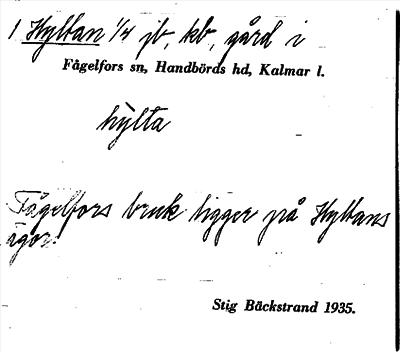 1 Hyltan 1/4 jb, kb, gård i
Fågelfors sn, Handbörds hd, Kalmar l.
hylta
Fågelfors bruk ligger på Hyltans
ägor.
Stig Bäckstrand 1935.